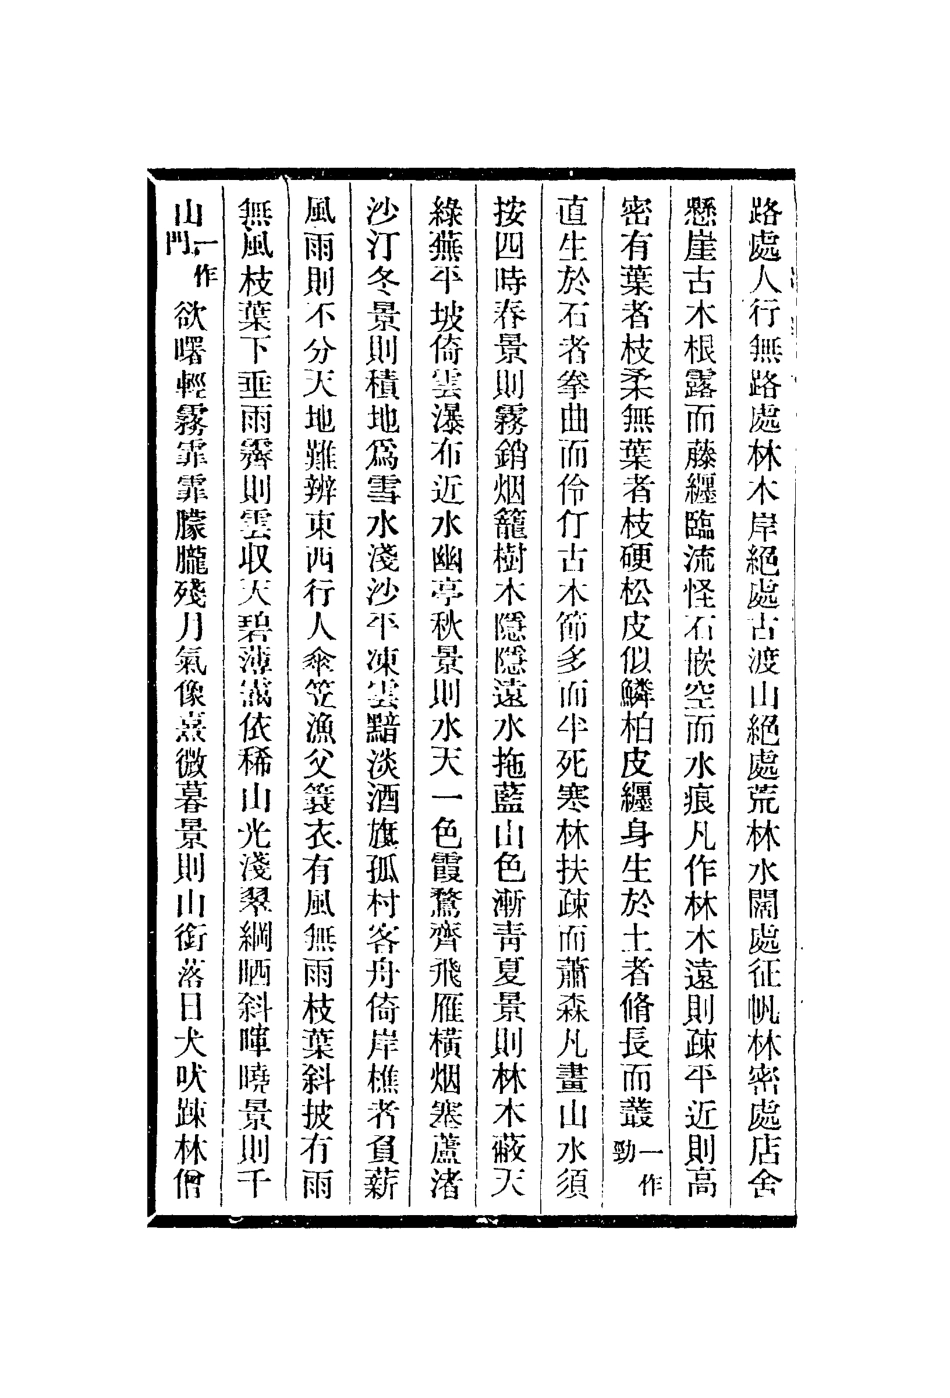 路處人行無路處林木岸絕處古渡山絕處荒林水闊處征帆林密處店舍
懸崖古木根露而藤纏臨流怪石嵌空而水痕凡作林木遠則疎平近則高
密有葉者枝柔無葉者枝硬松皮似鱗柏皮纏身生於土者脩長而叢一作勁
直生於石者拳曲而伶仃古木節多而半死寒林扶疎而蕭森凡畫山水須
按四時春景則霧銷烟籠樹木隱隱遠水拖藍山色漸青夏景則林木蔽天
綠蕪平坡倚雲瀑布近水幽亭秋景則水天一色霞鶩齊飛雁橫烟塞蘆渚
沙汀冬景則積地爲雪水淺沙平凍雲黯淡酒旗孤村客舟倚岸樵者負薪
風雨則不分天地難辨東西行人傘笠漁父簑衣有風無雨枝葉斜披有雨
無風枝葉下垂雨霽則雲収天碧薄靄依稀山光淺翠網晒斜暉曉景則千
山一作門欲曙輕霧霏霏朦朧殘月氣像熹微暮景則山銜落日犬吠踈林僧